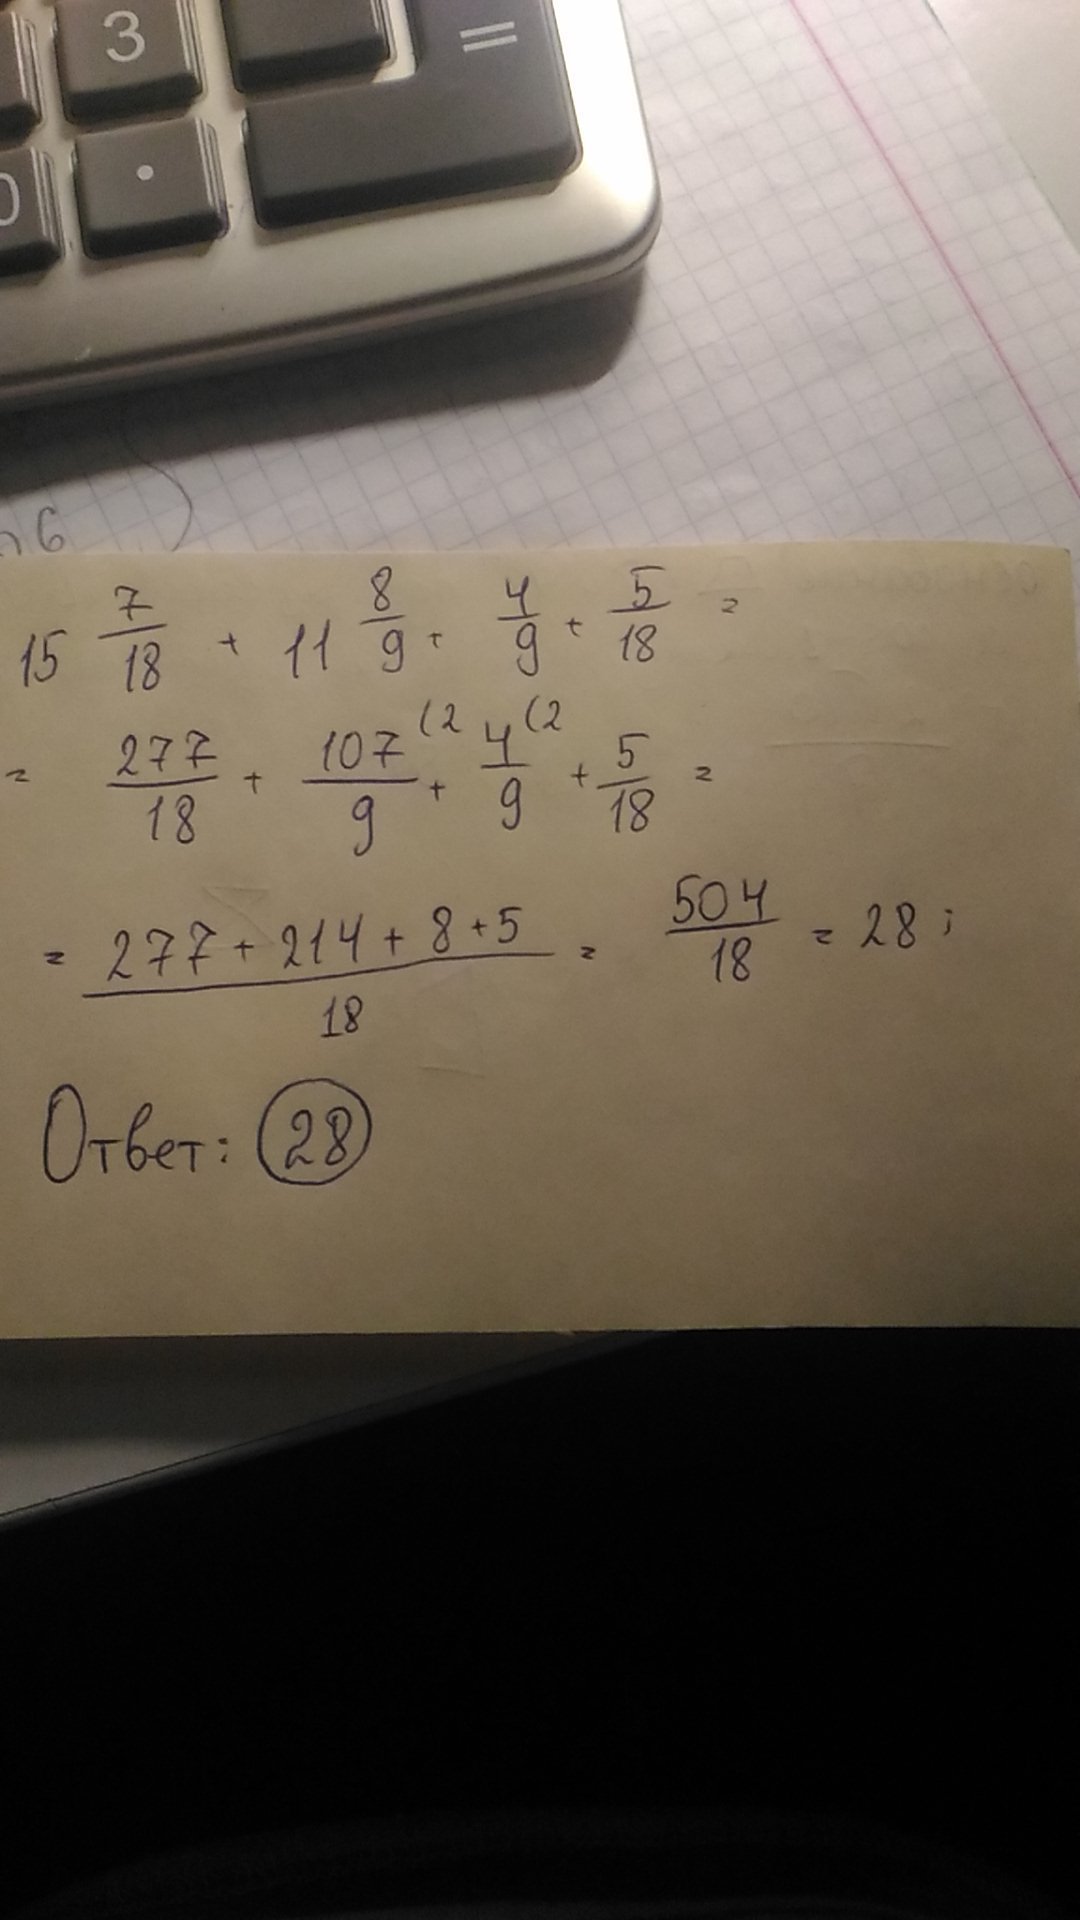 3 =
0 .
6
15 7/18 + 11 8/9 + 4/9 + 5/18 =
= 277/18 + 107/9 (2 + 4/9 (2 + 5/18 =
= 277 + 214 + 8 + 5 / 18 = 504/18 = 28 ;
Ответ: 28